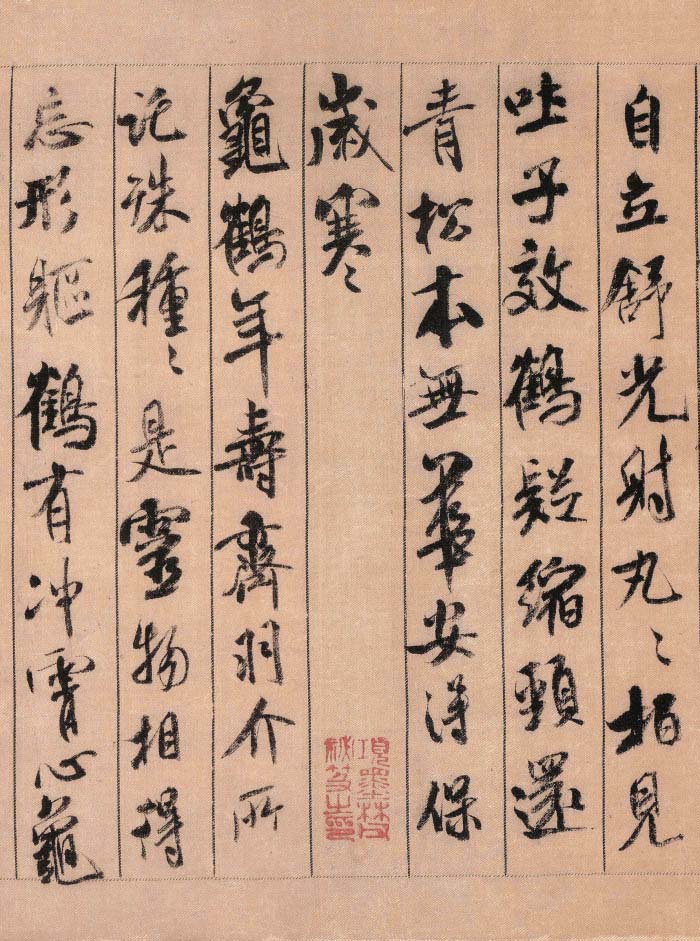 自立舒光射丸〻柏見
吐子效鶴疑縮頸還
青松本無華安得保
歲寒
項墨林父
秘笈之印
龜鶴年壽齊羽介所
託殊種〻是靈物相得
忘形軀鶴有冲霄心龜